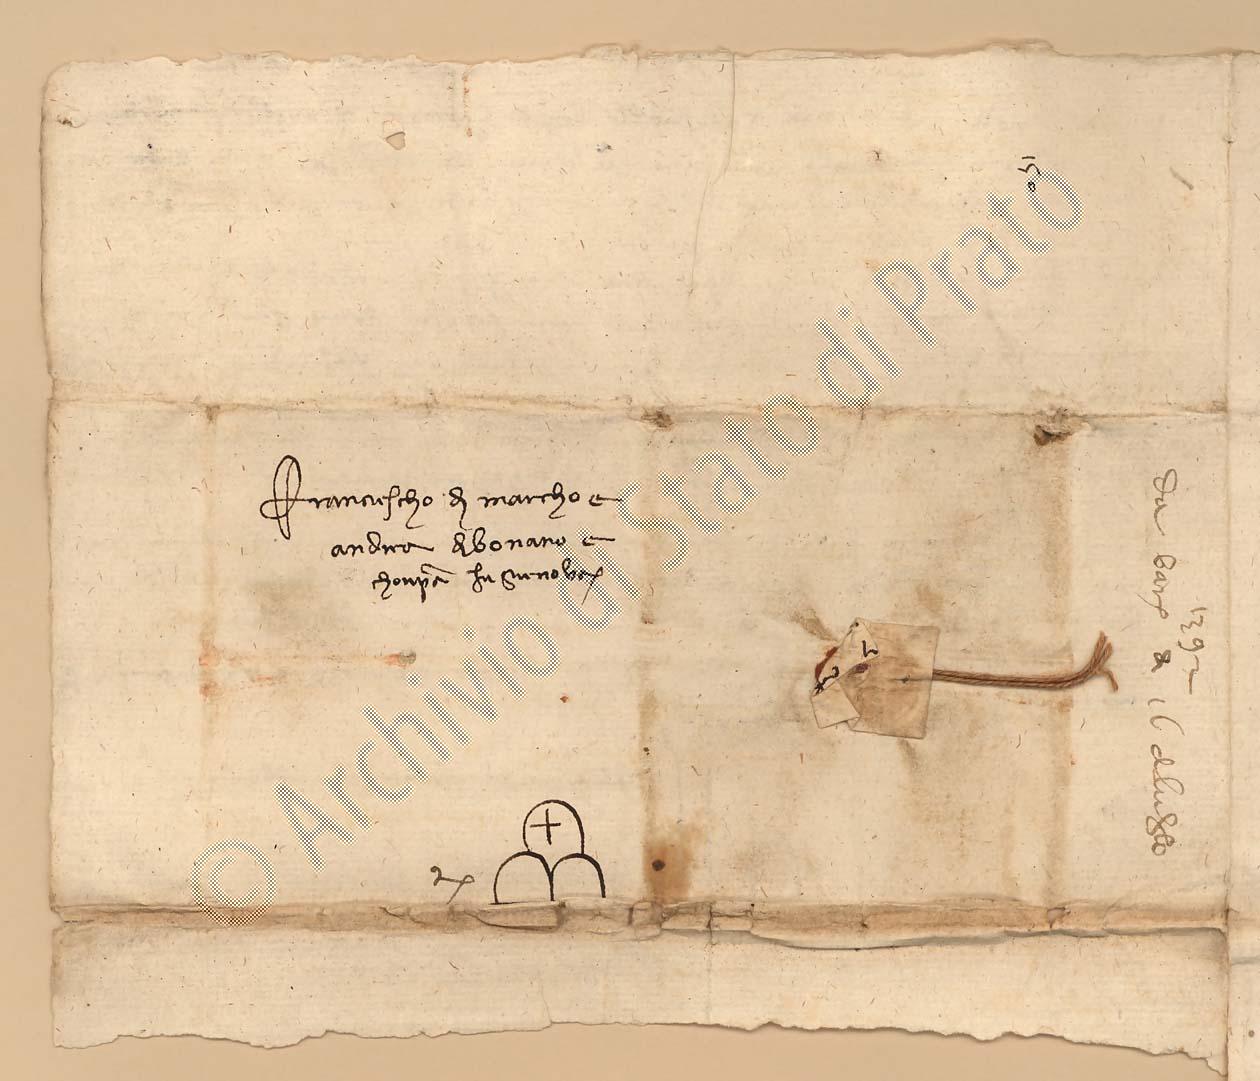 Franciescho di marcho e
andrea di bonano e
chonp.a in Gienova
1392
Da
a 16 di luglio
© Archivio di Stato di Prato